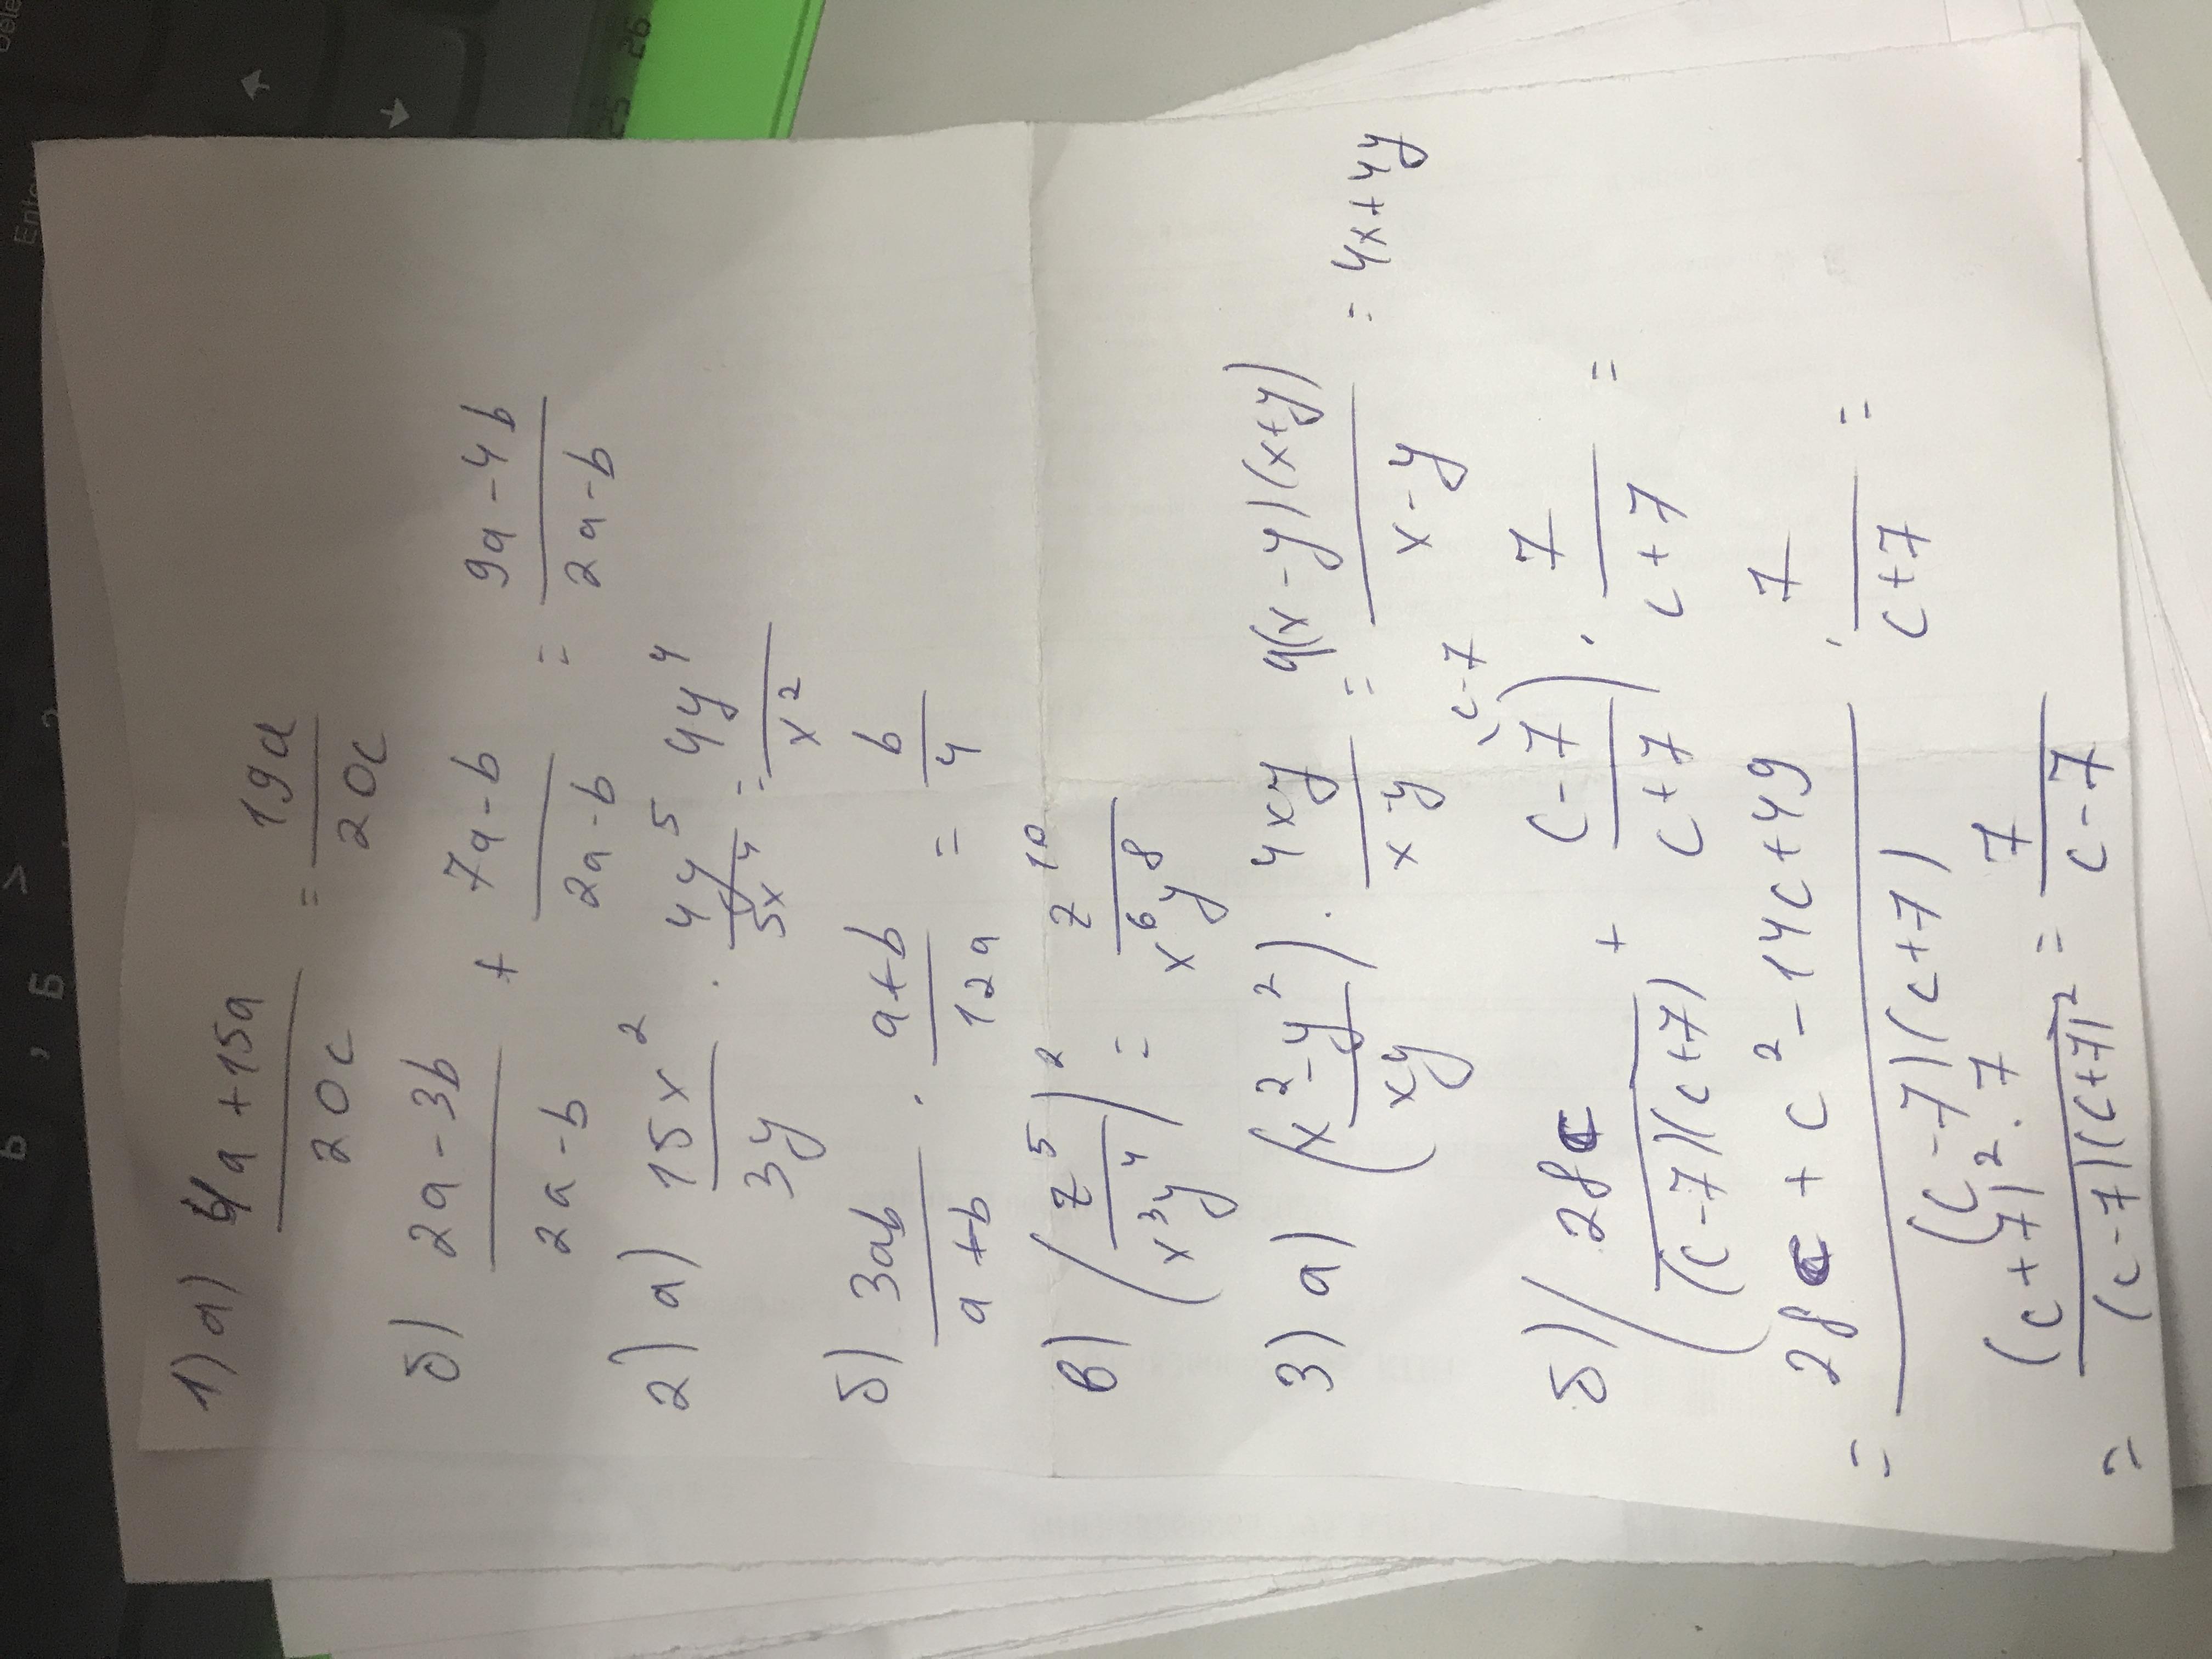 1) а) (4a+15a)/20c = 19a/20c
б) (2a-3b)/(2a-b) + (7a-b)/(2a-b) = (9a-4b)/(2a-b)
2) a) 15x²/3y · 4y⁵/5x⁴ = 4y⁴/x²
б) 3ab/(a+b) · (a+b)/12a = b/4
в) (z⁵/x³y⁴)² = z¹⁰/x⁶y⁸
3) a) (x²-y²/xy) · 4xy/x-y = 4(x-y)(x+y)/x-y = 4x+4y
б) (28c/(c-7)(c+7) + c-7/c+7 \c-7) · 7/c+7 =
= 28c+c²-14c+49/(c-7)(c+7) · 7/c+7 =
= (c+7)²·7/(c-7)(c+7)² = 7/c-7
Enter
Б
Ь
,
>
25 26